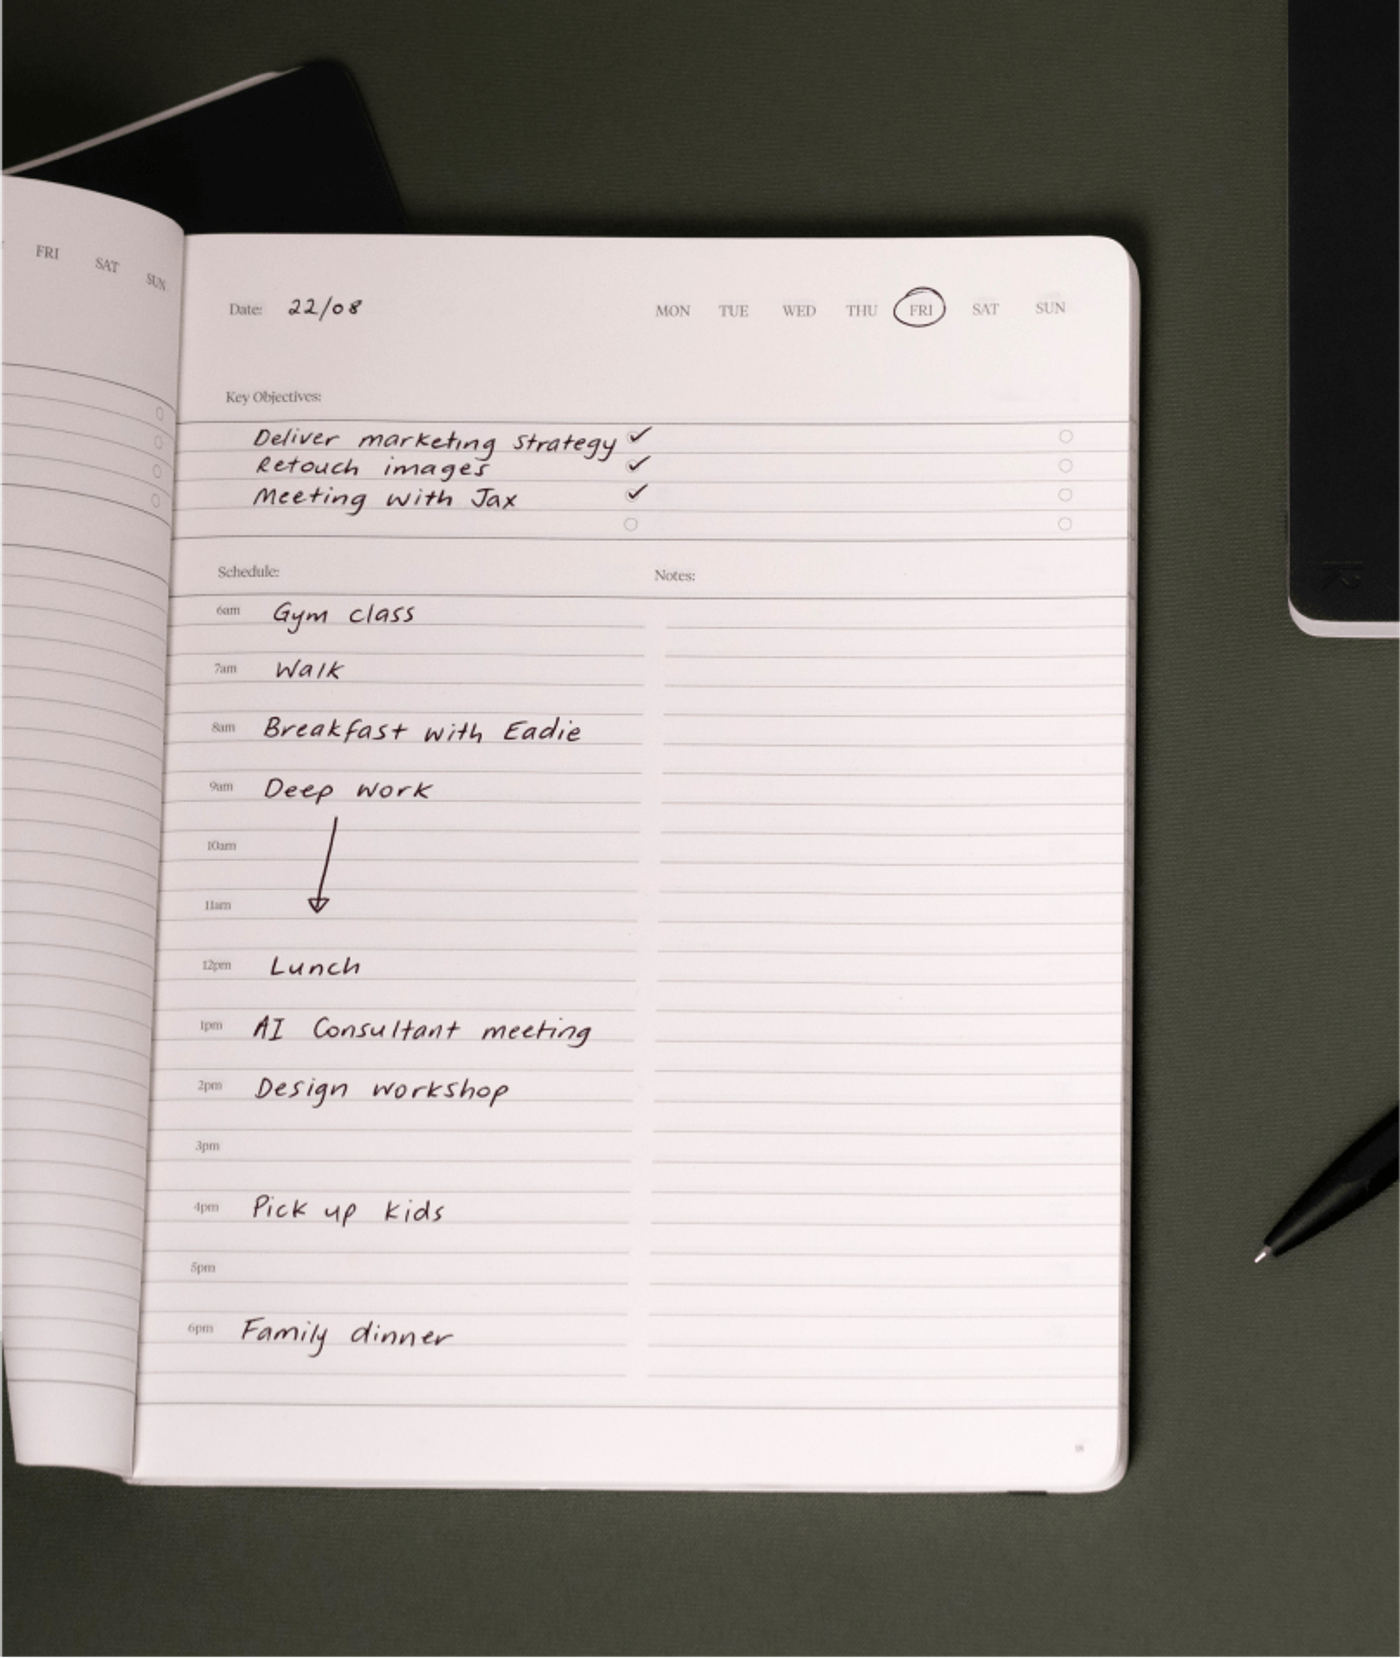 FRI SAT SUN
Date: 22/08 MON TUE WED THU FRI SAT SUN
Key Objectives:
Deliver marketing strategy
Retouch images
Meeting with Jax
Schedule: Notes:
6am Gym class
7am Walk
8am Breakfast with Eadie
9am Deep work
10am
11am
12pm Lunch
1pm AI Consultant meeting
2pm Design workshop
3pm
4pm Pick up kids
5pm
6pm Family dinner